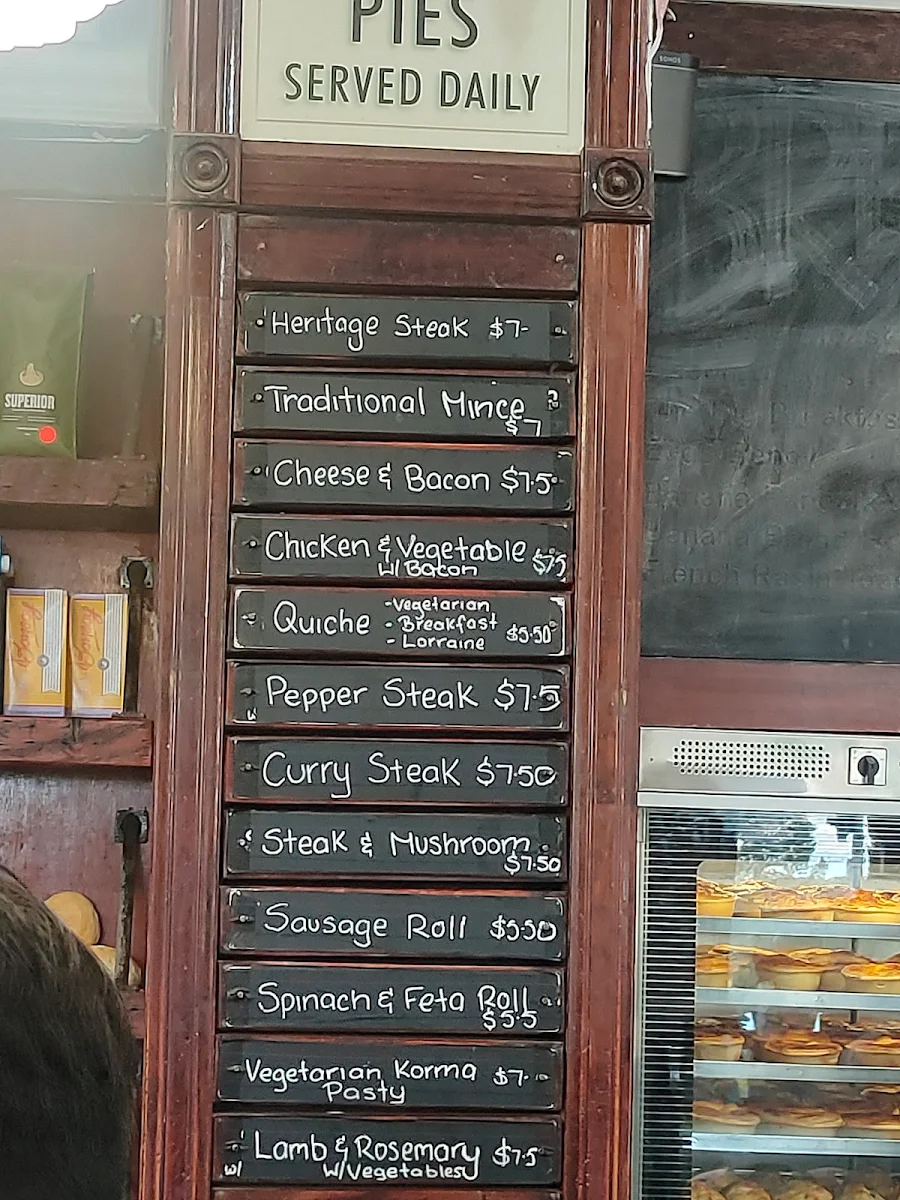 PIES
SERVED DAILY
SONOS
SUPERIOR
Heritage Steak $7-
Traditional Mince
$7
Cheese & Bacon $7.5
Chicken & Vegetable $7.5
w/ Bacon
Quiche
-Vegetarian
- Breakfast
- Lorraine
$5.50
Pepper Steak $7.5
Curry Steak $7.50
Steak & Mushroom
$7.50
Sausage Roll $5.50
Spinach & Feta Roll
$5.5
Vegetarian Korma $7-
Pasty
Lamb & Rosemary $7.5
w/ w/Vegetables